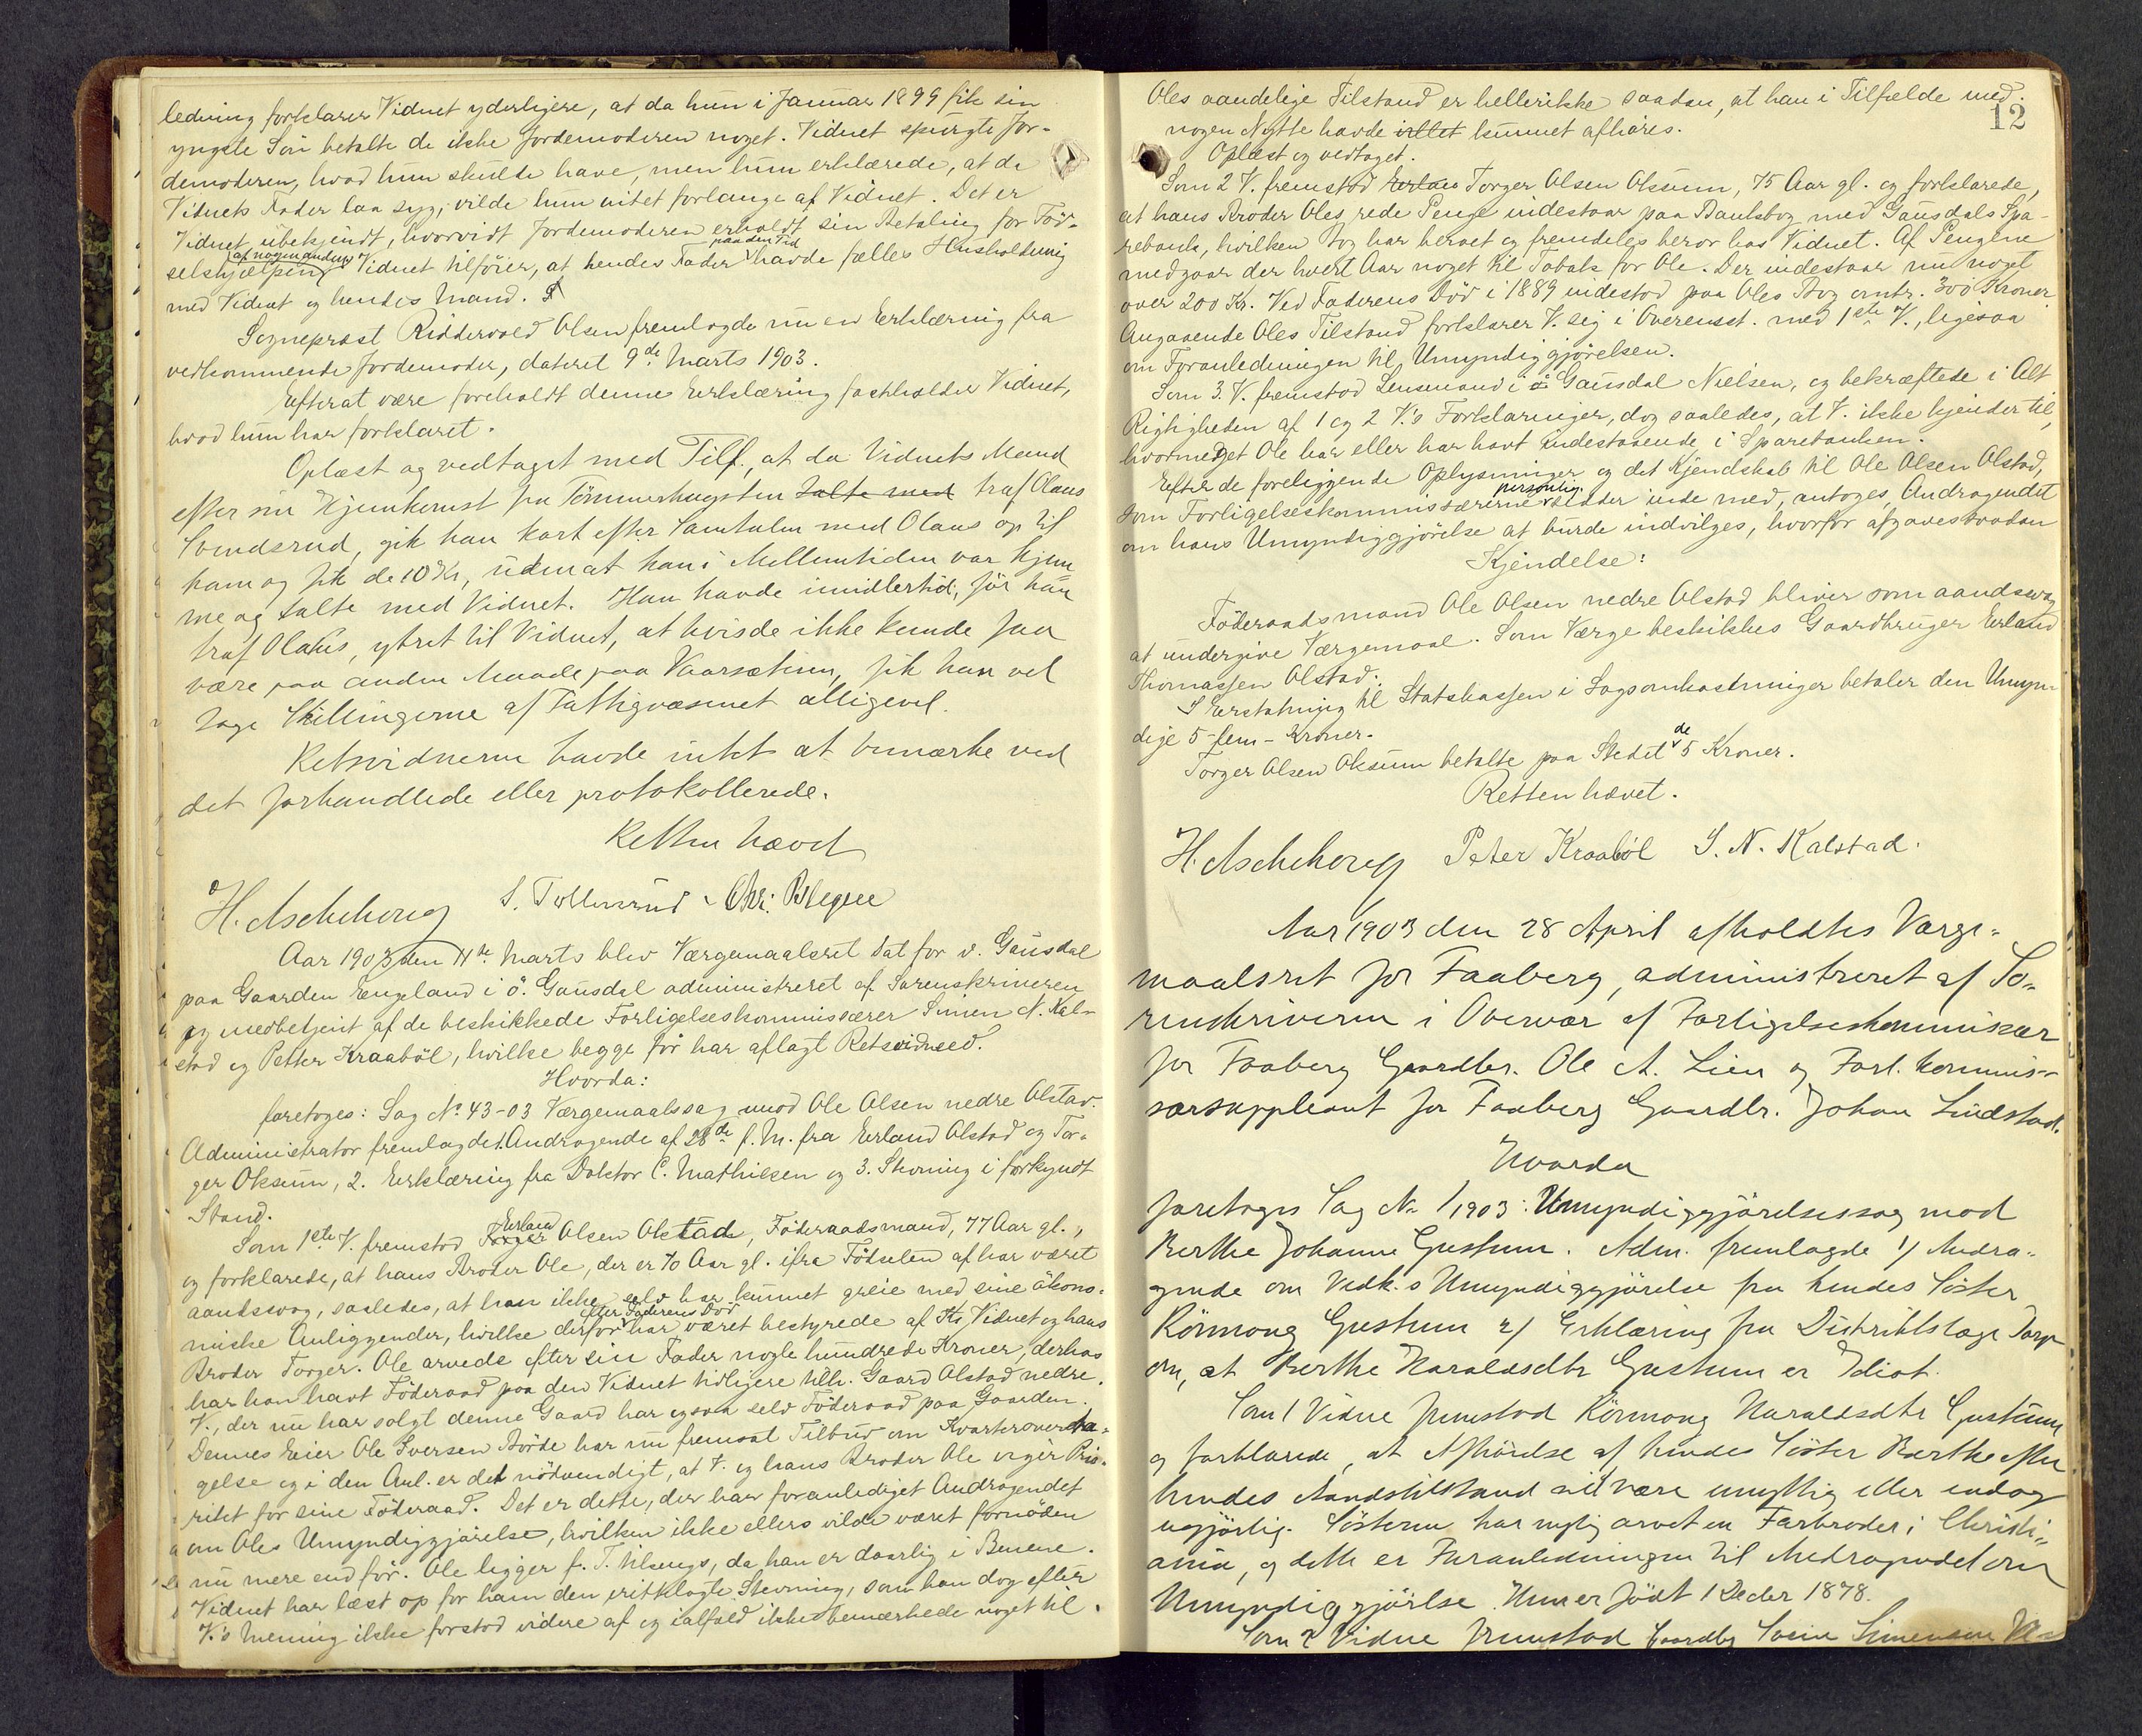 ledning forklarer Vidnet yderligere, at da hun i Januar 1899 fik sin
yngste Søn betalte de ikke Jordemoderen noget. Vidnet spurgte Jor-
demoderen, hvad hun skulde have, men hun erklærede, at da
Vidnets Fader laa syg, vilde hun intet forlange af Vidnet. Det er
Vidnet ubekjendt, hvorvidt Jordemoderen erholdt sin Betaling for Fød-
selshjælpen af nogen anden. Vidnet tilføier, at hendes Fader paa den Tid havde fælles Husholdning
med Vidnet og hendes Mand.
Sogneprest Riddervold Olsen fremlagde nu en Erklæring fra
vedkommende Jordemoder, dateret 9de Marts 1903.
Efterat være foreholdt denne Erklæring fastholder Vidnet,
hvad hun har forklaret.
Oplæst og vedtaget med Tilf., at da Vidnets Mand
efter sin Hjemkomst fra Tømmerhugsten talte med traf Olaus
Svendsrud, gik han kort efter Samtalen med Olaus op til
ham og fik de 10 Kr, uden at han i Mellemtiden var hjem
me og talte med Vidnet. Han havde imidlertid, før han
traf Olaus, ytret til Vidnet, at hvis de ikke kunde faa
være paa anden Maade paa Vaarsætren, fik han vel
tage Skillingerne af Fattigvæsenet alligevel.
Retsvidnerne havde intet at bemærke ved
det forhandlede eller protokollerede.
Retten hævet
H. Aschehoug S. Tollersrud Chr. Blegen
Aar 1903 den 11te Marts blev Værgemaalsret sat for ö. Gausdal
paa Gaarden Engeland i ö. Gausdal administreret af Sorenskriveren
og medbetjent af de beskikkede Forligelseskommissærer Simen N. Kal-
stad og Petter Kraaböl, hvilke begge før har aflagt Retsvidneed.
Hvorda:
foretoges: Sag No 43-03 Værgemaalssag mod Ole Olsen nedre Olstad.
Administrator fremlagde 1. Andragende af 28de f. M. fra Erland Olstad og Tor-
ger Oksum, 2. Erklæring fra Doktor C. Mathiesen og 3. Stevning i forkyndt
Stand.
Som 1ste V. fremstod Torger Erland Olsen Olstad, Föderaadsmand, 77 Aar gl.,
og forklarede, at hans Broder Ole, der er 70 Aar gl. ifra Födselen af har været
aandssvag, saaledes, at han ikke selv har kunnet greie med sine økono-
miske Anliggender, hvilke derfor efter Faderens Död har været bestyrede af Kr Vidnet og hans
Broder Torger. Ole arvede efter sin Fader nogle hundrede Kroner, derhos
har han havt Föderaad paa den Vidnet tidligere tilh. Gaard Olstad nedre.
V., der nu har solgt denne Gaard har ogsaa selv Föderaad paa Gaarden.
Dennes Eier Ole Iversen Börde har nu fremsat Tilbud om Kvarterovertа-
gelse og i den Anl. er det nödvendigt, at V. og hans Broder Ole viger Prio-
ritet for sine Föderaad. Det er dette, der har foranlediget Andragendet
om Oles Umyndiggjörelse, hvilken ikke ellers vilde været fornöden
nu mere end för. Ole ligger f. T. tilsengs, da han er daarlig i Benene.
Vidnet har læst op for ham den eritklagte Stevning, som han dog efter
V.'s Mening ikke forstod videre af og ialfald ikke bemærkede noget til.
12
Oles aandelige Tilstand er heller ikke saadan, at han i Tilfælde med
nogen Nytte havde villet kunnet afhöres.
Oplæst og vedtaget.
Som 2 V. fremstod Erlan Torger Olsen Oksum, 75 Aar gl. og forklarede,
at hans Broder Oles rede Penge indestaar paa Bankbog med Gausdals Spa-
rebank, hvilken Bog har beroet og fremdeles beror hos Vidnet. Af Pengene
medgaar der hvert Aar noget til Tobak for Ole. Der indestaar nu noget
over 200 Kr. Ved Faderens Död i 1889 indestod paa Oles Bog omtr. 300 Kroner.
Angaaende Oles Tilstand forklarer V. sig i Overensst. med 1ste V., ligesaa
om Foranledningen til Umyndiggjörelsen.
Som 3. V. fremstod Lensmand i ö. Gausdal Nielsen, og bekræftede i Alt
Rigtigheden af 1 og 2 V.'s Forklaringer, dog saaledes, at V. ikke kjender til,
hvormeget Ole har eller har havt indestaaende i Sparebanken.
Efter de foreliggende Oplysninger og det Kjendskab til Ole Olsen Olstad,
som Forligelseskommissærerne personlig sidder inde med, antoges Andragendet
om hans Umyndiggjörelse at burde indvilges, hvorfor afgaves saadan
Kjendelse:
Föderaadsmand Ole Olsen nedre Olstad bliver som aandssvag
at undergive Værgemaal. Som Værge beskikkes Gaardbruger Erland
Thomassen Olstad.
I Erstatning til Statskassen i Sagsomkostninger betaler den Umyn-
dige 5 - fem - Kroner.
Torger Olsen Oksum betalte paa Stedet de 5 Kroner.
Retten hævet.
H. Aschehoug Peter Kraaböl S. N. Kalstad.
Aar 1903 den 28 April afholdtes Værge-
maalsret for Faaberg, administreret af So-
renskriveren i Overvær af Forligelseskommissær
for Faaberg Gaardbr. Ole A. Lien og Forl. kommis-
særsuppleant for Faaberg Gaardbr. Johan Lindstad.
Hvorda
foretoges Sag No 1/1903: Umyndiggjörelsessag mod
Berthe Johanne Gustum. Adm. fremlagde 1/ Andra-
gende om Vedk.s Umyndiggjörelse fra hendes Söster
Rönnoug Gustum 2/ Erklæring fra Distriktslæge Torp
om, at Berthe Haraldsdtr Gustum er Idiot.
Som 1 Vidne fremstod Rönnoug Haraldsdtr Gustum
og forklarede, at Afhörelse af hendes Söster Berthe efter
hendes Aandstilstand vil være unyttig eller endog
ugjörlig. Sösteren har nylig arvet en Farbroder i Christi-
ania, og dette er Foranledningen til Andragendet om
Umyndiggjörelse. Hun er födt 1 Decbr 1878.
Som 2 Vidne fremstod Gaardbr Simensen